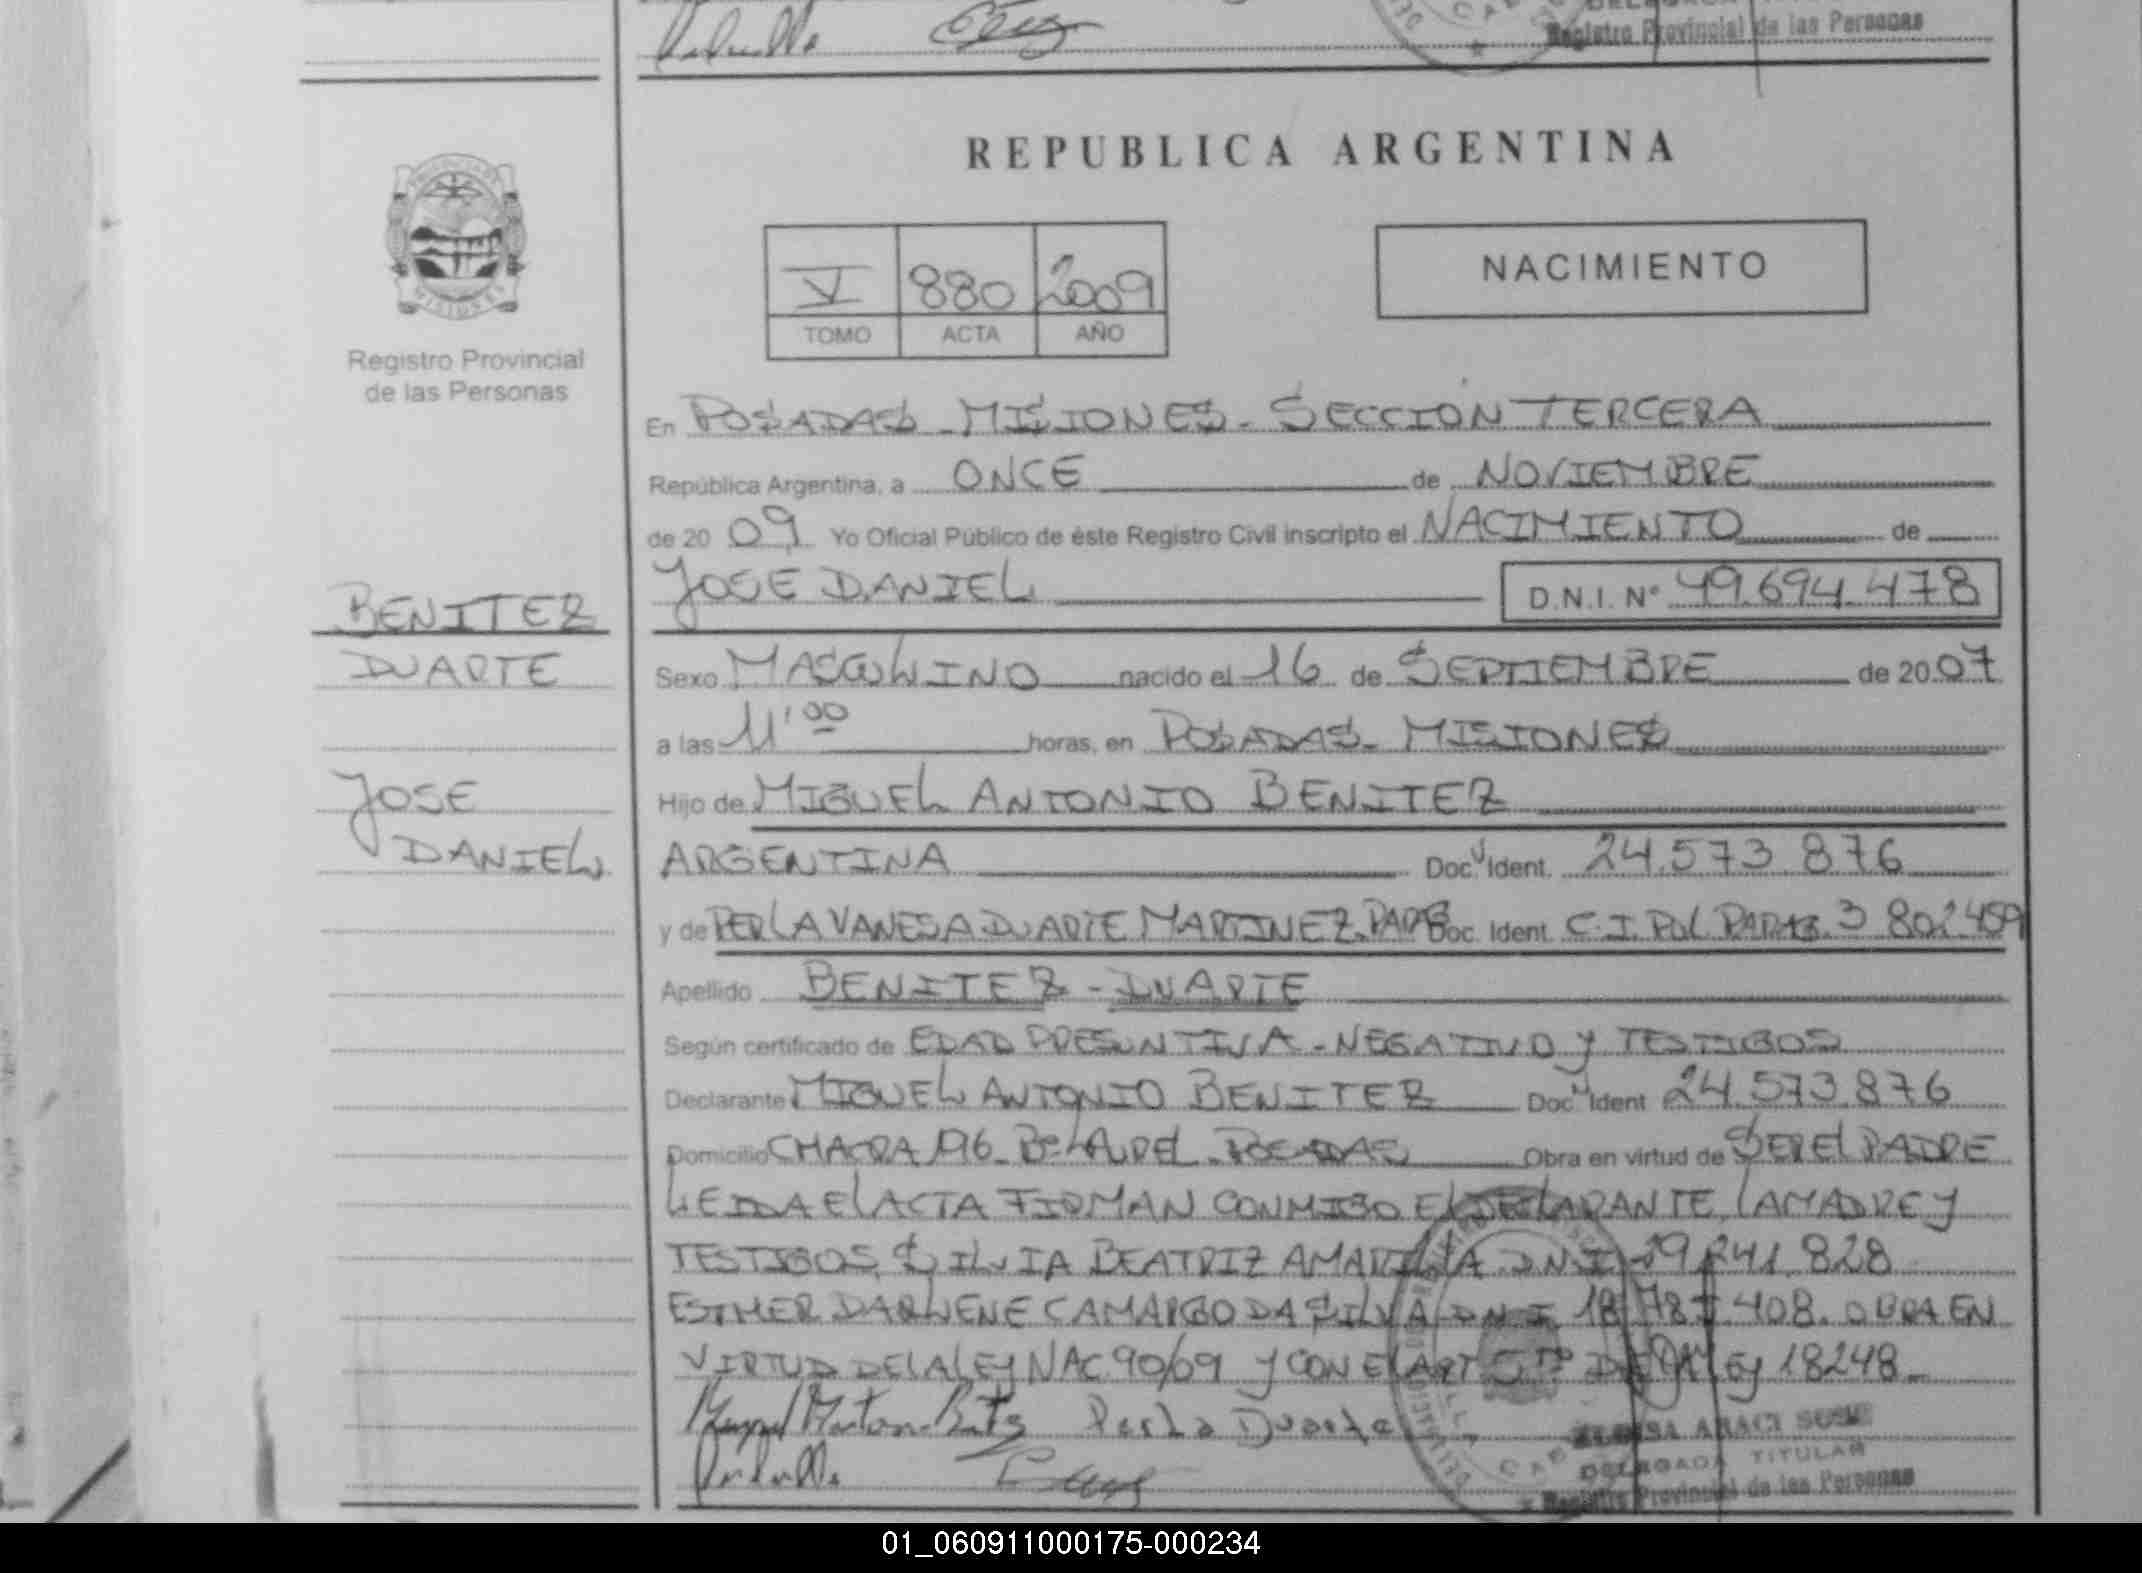 Registro Provincial de las Personas
REPUBLICA ARGENTINA
V 880 2009
TOMO ACTA AÑO
NACIMIENTO
Registro Provincial
de las Personas
En POSADAS - MISIONES - SECCION TERCERA
República Argentina, a ONCE de NOVIEMBRE
de 20 09 Yo Oficial Público de éste Registro Civil inscripto el NACIMIENTO de
JOSE DANIEL D.N.I. Nº 49.694.478
BENITEZ
DUARTE
JOSE
DANIEL
Sexo MASCULINO nacido el 16 de SEPTIEMBRE de 20 07
a las 11'00 horas, en POSADAS - MISIONES
Hijo de MIGUEL ANTONIO BENITEZ
ARGENTINA Doc. Ident. 24.573.876
y de PERLA VANESA DUARTE MARTINEZ. Doc. Ident. C.I. Pol. 3 802 459
Apellido BENITEZ - DUARTE
Según certificado de EDAD PRESUNTIVA - NEGATIVO Y TESTIGOS
Declarante MIGUEL ANTONIO BENITEZ Doc. Ident 24.573.876
Domicilio CHACRA 196 - POSADAS Obra en virtud de SER EL PADRE
LEIDA EL ACTA FIRMAN CONMIGO EL DECLARANTE, LA MADRE Y
TESTIGOS, SILVIA BEATRIZ AMARILLA D.N.I 29.241.828
ESTHER DARLENE CAMARGO DA SILVA D.N.I 18.787.408. OBRA EN
VIRTUD DE LA LEY NAC. 90/09 Y CON EL ART 5to DE LA LEY 18248
Perla Duarte
DELEGADA TITULAR
Registro Provincial de las Personas
01_060911000175-000234